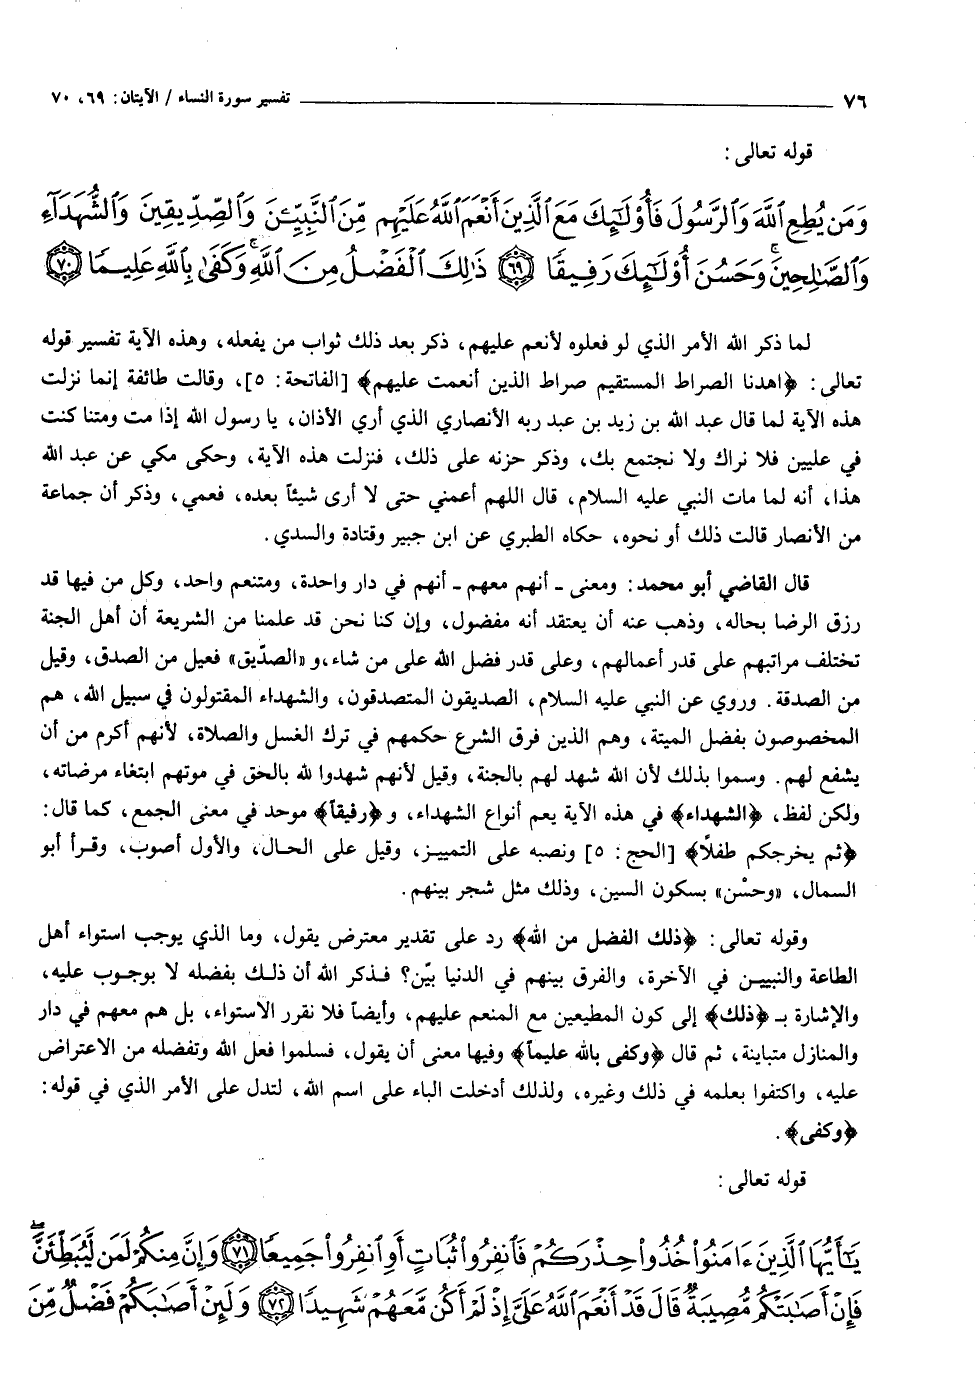 ٧٦ تفسير سورة النساء / الآيتان: ٦٩، ٧٠
قوله تعالى:
وَمَن يُطِعِ ٱللَّهَ وَٱلرَّسُولَ فَأُو۟لَـٰٓئِكَ مَعَ ٱلَّذِينَ أَنْعَمَ ٱللَّهُ عَلَيْهِم مِّنَ ٱلنَّبِيِّـۧنَ وَٱلصِّدِّيقِينَ وَٱلشُّهَدَآءِ
وَٱلصَّـٰلِحِينَ ۚ وَحَسُنَ أُو۟لَـٰٓئِكَ رَفِيقًا ٦٩ ذَٰلِكَ ٱلْفَضْلُ مِنَ ٱللَّهِ ۚ وَكَفَىٰ بِٱللَّهِ عَلِيمًا ٧٠
لما ذكر الله الأمر الذي لو فعلوه لأنعم عليهم، ذكر بعد ذلك ثواب من يفعله، وهذه الآية تفسير قوله
تعالى: ﴿اهدنا الصراط المستقيم صراط الذين أنعمت عليهم﴾ [الفاتحة: ٥]، وقالت طائفة إنما نزلت
هذه الآية لما قال عبد الله بن زيد بن عبد ربه الأنصاري الذي أري الأذان، يا رسول الله إذا مت ومتنا كنت
في عليين فلا نراك ولا نجتمع بك، وذكر حزنه على ذلك، فنزلت هذه الآية، وحكى مكي عن عبد الله
هذا، أنه لما مات النبي عليه السلام، قال اللهم أعمني حتى لا أرى شيئاً بعده، فعمي، وذكر أن جماعة
من الأنصار قالت ذلك أو نحوه، حكاه الطبري عن ابن جبير وقتادة والسدي.
قال القاضي أبو محمد: ومعنى ـ أنهم معهم ـ أنهم في دار واحدة، ومتنعم واحد، وكل من فيها قد
رزق الرضا بحاله، وذهب عنه أن يعتقد أنه مفضول، وإن كنا نحن قد علمنا من الشريعة أن أهل الجنة
تختلف مراتبهم على قدر أعمالهم، وعلى قدر فضل الله على من شاء، و«الصدّيق» فعيل من الصدق، وقيل
من الصدقة. وروي عن النبي عليه السلام، الصديقون المتصدقون، والشهداء المقتولون في سبيل الله، هم
المخصوصون بفضل الميتة، وهم الذين فرق الشرع حكمهم في ترك الغسل والصلاة، لأنهم أكرم من أن
يشفع لهم. وسموا بذلك لأن الله شهد لهم بالجنة، وقيل لأنهم شهدوا لله بالحق في موتهم ابتغاء مرضاته،
ولكن لفظ، ﴿الشهداء﴾ في هذه الآية يعم أنواع الشهداء، و﴿رفيقاً﴾ موحد في معنى الجمع، كما قال:
﴿ثم يخرجكم طفلًا﴾ [الحج: ٥] ونصبه على التمييز، وقيل على الحال، والأول أصوب، وقرأ أبو
السمال، «وحسْن» بسكون السين، وذلك مثل شجر بينهم.
وقوله تعالى: ﴿ذلك الفضل من الله﴾ رد على تقدير معترض يقول، وما الذي يوجب استواء أهل
الطاعة والنبيين في الآخرة، والفرق بينهم في الدنيا بيّن؟ فذكر الله أن ذلك بفضله لا بوجوب عليه،
والإشارة بـ ﴿ذلك﴾ إلى كون المطيعين مع المنعم عليهم، وأيضاً فلا نقرر الاستواء، بل هم معهم في دار
والمنازل متباينة، ثم قال ﴿وكفى بالله عليماً﴾ وفيها معنى أن يقول، فسلموا فعل الله وتفضله من الاعتراض
عليه، واكتفوا بعلمه في ذلك وغيره، ولذلك أدخلت الباء على اسم الله، لتدل على الأمر الذي في قوله:
﴿وكفى﴾.
قوله تعالى:
يَـٰٓأَيُّهَا ٱلَّذِينَ ءَامَنُوا۟ خُذُوا۟ حِذْرَكُمْ فَٱنفِرُوا۟ ثُبَاتٍ أَوِ ٱنفِرُوا۟ جَمِيعًا ٧١ وَإِنَّ مِنكُمْ لَمَن لَّيُبَطِّئَنَّ ۖ
فَإِنْ أَصَـٰبَتْكُم مُّصِيبَةٌ قَالَ قَدْ أَنْعَمَ ٱللَّهُ عَلَىَّ إِذْ لَمْ أَكُن مَّعَهُمْ شَهِيدًا ٧٢ وَلَئِنْ أَصَـٰبَكُمْ فَضْلٌ مِّنَ